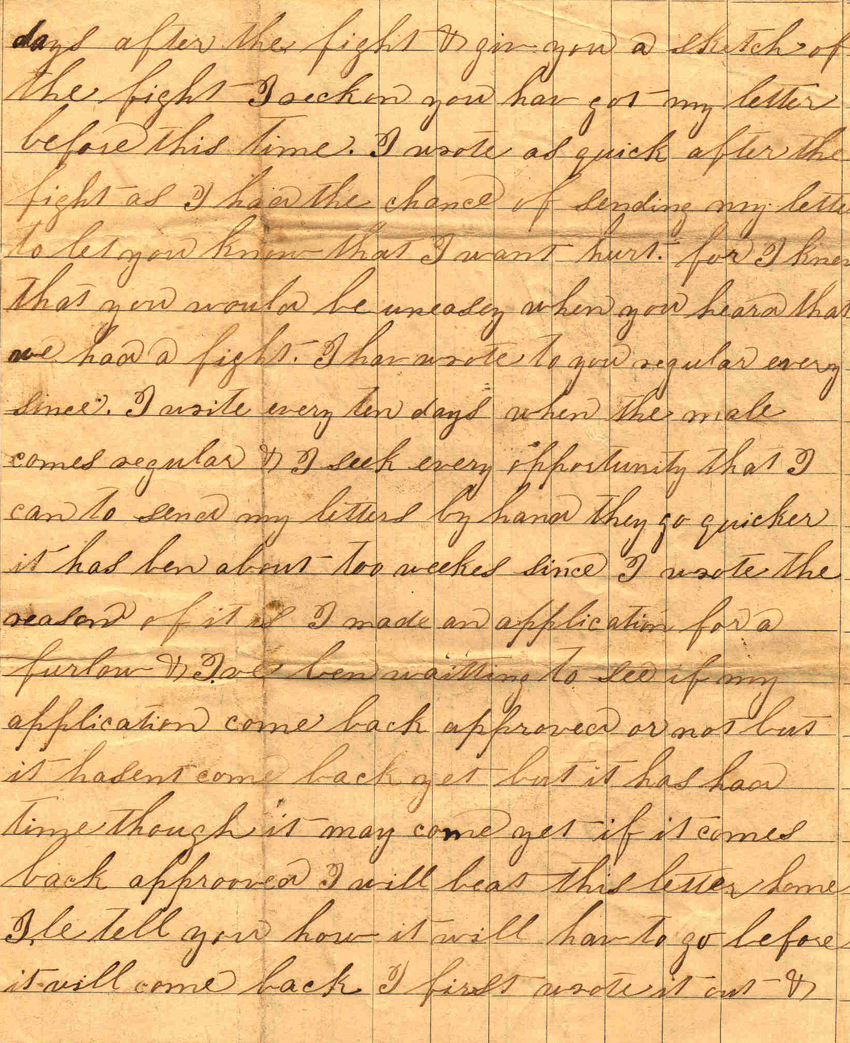 days after the fight & giv you a sketch of
the fight I reckon you hav got my letter
before this time. I wrote as quick after the
fight as I had the chance of sending my lette
to let you know that I want hurt. for I knew
that you would be uneasy when you heard that
we had a fight. I hav wrote to you regular every
since. I write every ten days when the male
comes regular & I seek every opportunity that I
can to send my letters by hand they go quicker
it has ben about too weekes since I wrote the
reason of it is I made an application for a
furlow & I've ben waitting to see if my
application come back approved or not but
it hasent come back yet but it has had
time though it may come yet if it comes
back approoved I will beat this letter home
I,le tell you how it will hav to go before
it will come back I first wrote it out &